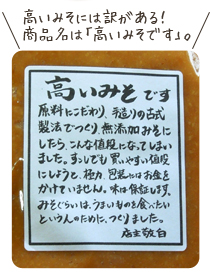 高いみそには訳がある!
商品名は「高いみそです」。
高いみそです
原料にこだわり、手造りの古式
製法でつくり、無添加みそに
したら、こんな値段になってしまい
ました。すこしでも買いやすい値段
にしようと、極力、包装にはお金を
かけていません。味は保証します。
みそぐらいは、うまいものを食べたい
という人のために、つくりました。
店主敬白